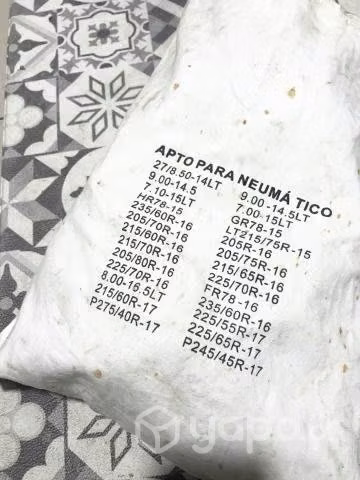 APTO PARA NEUMÁTICO
27/8.50-14LT 9.00-14.5LT
9.00-14.5 7.00-15LT
7.10-15LT GR78-15
HR78-15 LT215/75R-15
235/60R-16 205R-16
205/70R-16 205/75R-16
215/60R-16 215/65R-16
215/70R-16 225/70R-16
205/80R-16 FR78-16
225/70R-16 235/60R-16
8.00-16.5LT 225/55R-17
215/60R-17 225/65R-17
P275/40R-17 P245/45R-17